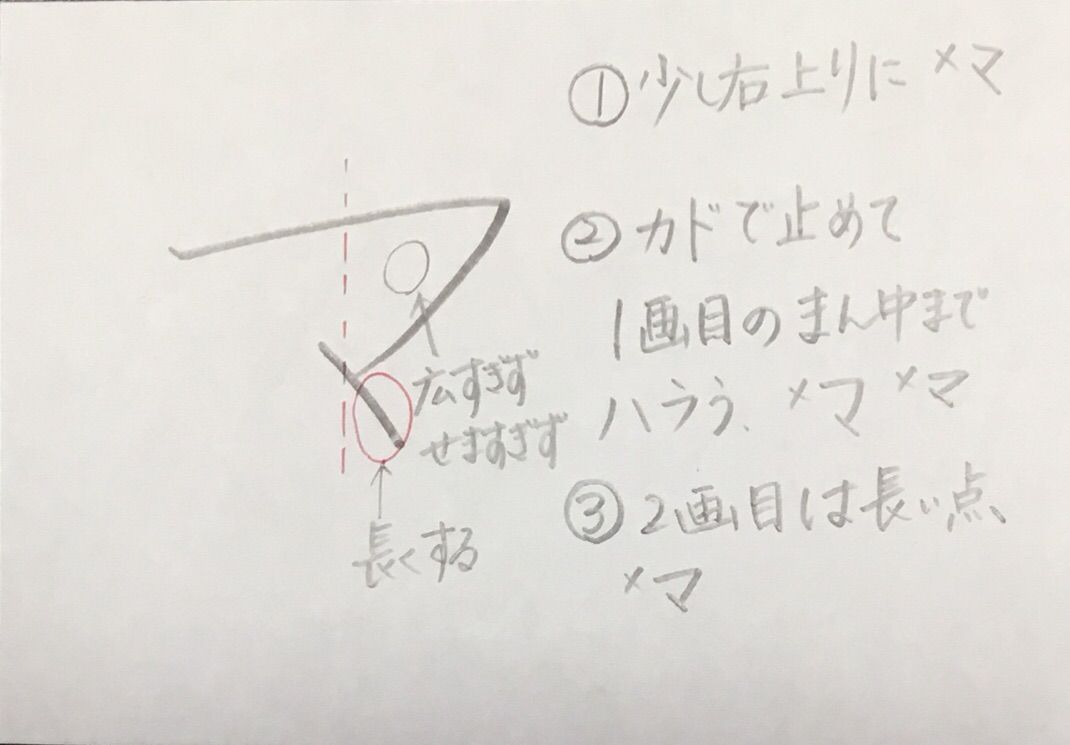 マ
広すぎず
せますぎず
長くする
① 少し右上りに ×マ
② カドで止めて
1画目のまん中まで
ハラう、×マ ×マ
③ 2画目は長い点、
×マ